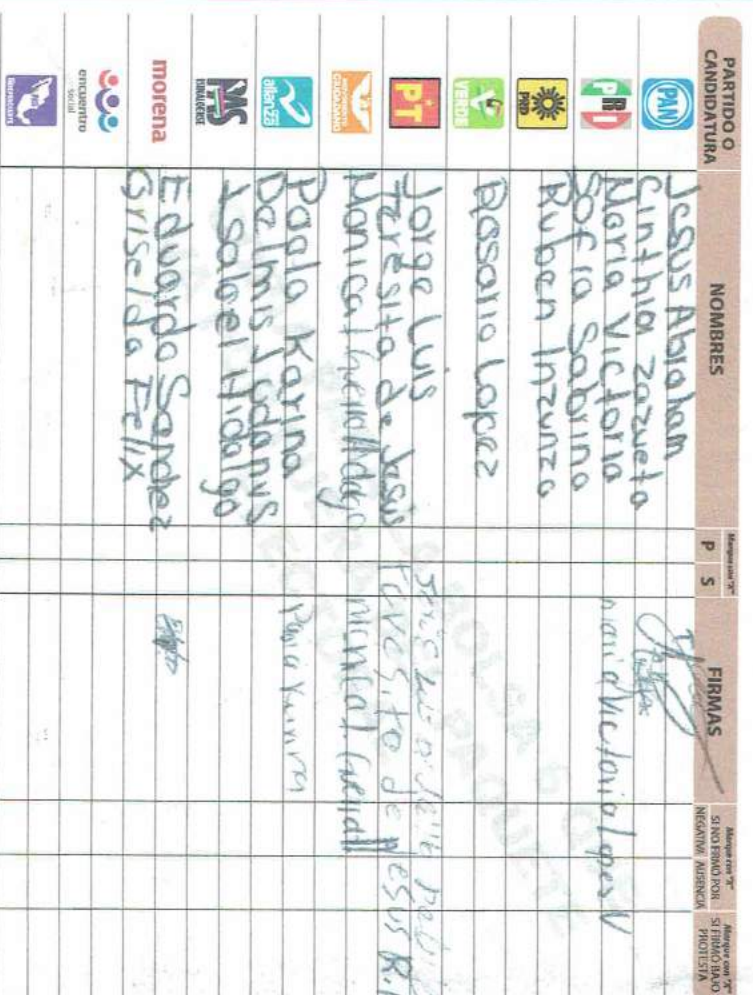 PARTIDO O
CANDIDATURA
NOMBRES
Marque con "X"
P
S
FIRMAS
Marque con "X"
SI NO FIRMÓ POR
NEGATIVA
AUSENCIA
Marque con "X"
SI FIRMÓ BAJO
PROTESTA
PAN
Jesus Abraham
Cinthia zazueta
PRI
Maria Victoria
maria victoria Lopez V
Sofia Sabrina
PRD
Ruben Inzunza
VERDE
Rosario Lopez
PT
Jorge Luis
Teresita de Jesus
Teresita de Jesus R.
MOVIMIENTO
CIUDADANO
Monica
alianza
Paola Karina
Paola Karina
Delmis
PAS
SINALOENSE
Hidalgo
morena
Eduardo Sanchez
Griselda Felix
encuentro
social